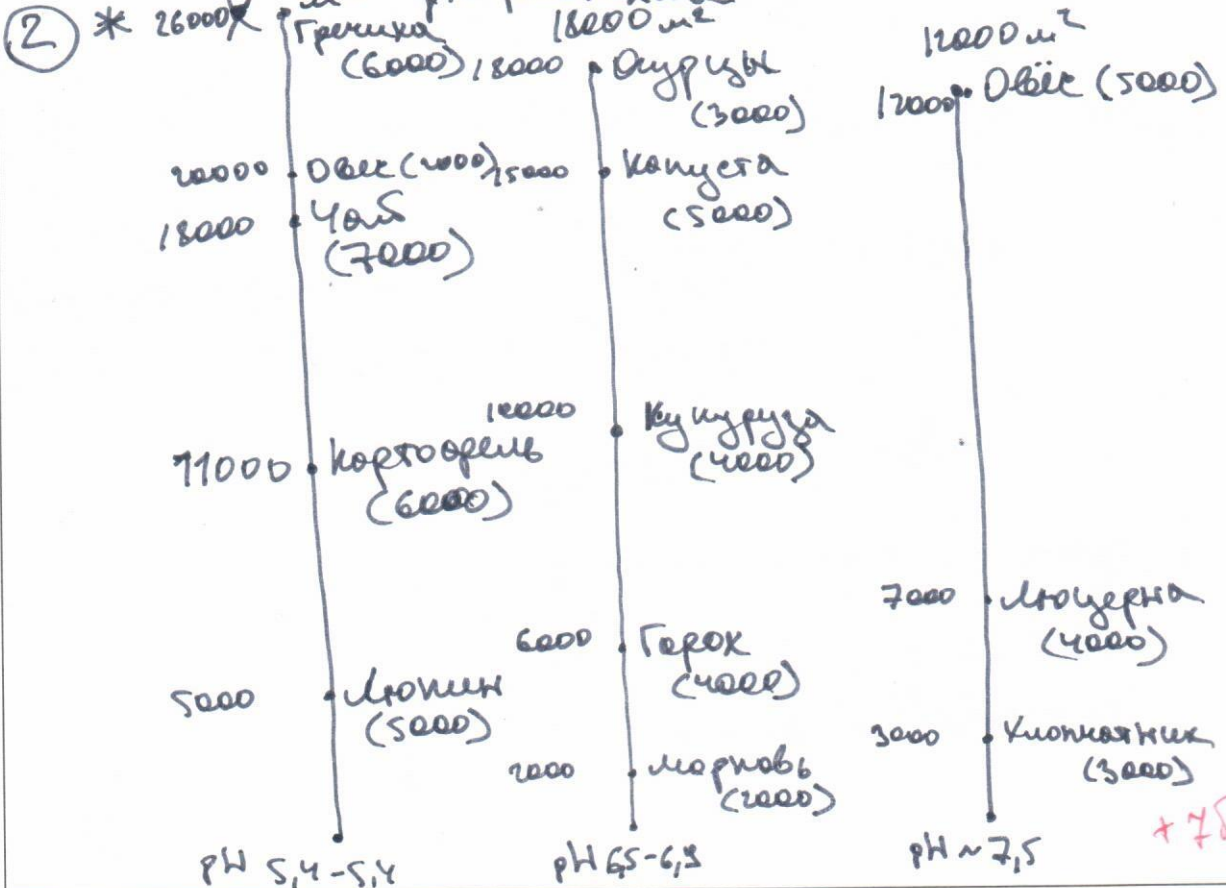 ② * 26000 Гречиха
(6000)
20000 Овёс (2000)
18000 Чай
(7000)
11000 Картофель
(6000)
5000 Люпин
(5000)
pH 5,4-5,4
18000 м²
18000 Огурцы
(3000)
15000 Капуста
(5000)
10000 Кукуруза
(4000)
6000 Горох
(4000)
2000 Морковь
(2000)
pH 6,5-6,9
12000 м²
12000 Овёс (5000)
7000 Люцерна
(4000)
3000 Хлопчатник
(3000)
pH ~ 7,5